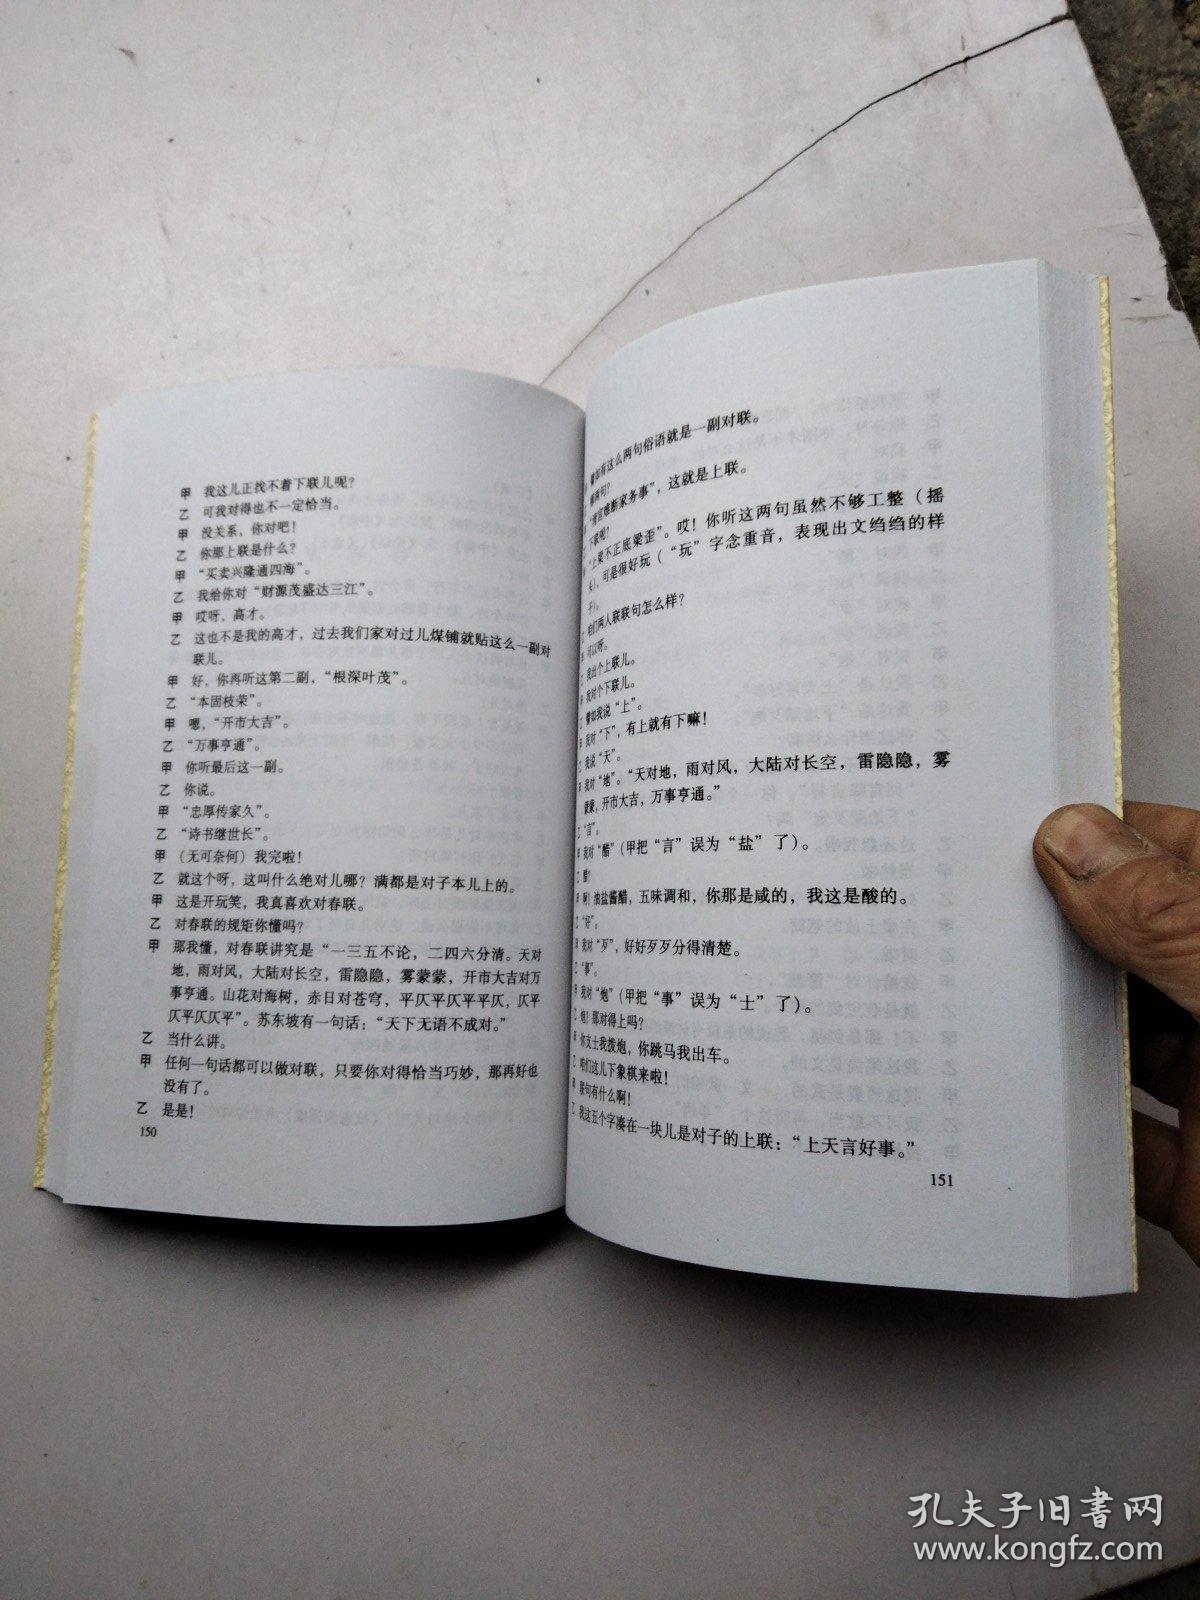 甲 我这儿正找不着下联儿呢？
乙 可我对得也不一定恰当。
甲 没关系，你对吧！
乙 你那上联是什么？
甲 “买卖兴隆通四海”。
乙 我给你对“财源茂盛达三江”。
甲 哎呀，高才。
乙 这也不是我的高才，过去我们家对过儿煤铺就贴这么一副对
联儿。
甲 好，你再听这第二副，“根深叶茂”。
乙 “本固枝荣”。
甲 嗯，“开市大吉”。
乙 “万事亨通”。
甲 你听最后这一副。
乙 你说。
甲 “忠厚传家久”。
乙 “诗书继世长”。
甲 （无可奈何）我完啦！
乙 就这个呀，这叫什么绝对儿哪？满都是对子本儿上的。
甲 这是开玩笑，我真喜欢对春联。
乙 对春联的规矩你懂吗？
甲 那我懂，对春联讲究是“一三五不论，二四六分清。天对
地，雨对风，大陆对长空，雷隐隐，雾蒙蒙，开市大吉对万
事亨通。山花对海树，赤日对苍穹，平仄平仄平平仄，仄平
仄平仄仄平”。苏东坡有一句话：“天下无语不成对。”
乙 当什么讲。
甲 任何一句话都可以做对联，只要你对得恰当巧妙，那再好也
没有了。
乙 是是！
150
譬如有这么两句俗语就是一副对联。
哪两句？
“清官难断家务事”，这就是上联。
下联呢？
“上梁不正底梁歪”。哎！你听这两句虽然不够工整（摇
头），可是很好玩（“玩”字念重音，表现出文绉绉的样
子）。
乙 咱们两人联联句怎么样？
甲 可以呀。
乙 我出个上联儿。
甲 我对个下联儿。
乙 譬如我说“上”。
甲 我对“下”，有上就有下嘛！
乙 我说“天”。
甲 我对“地”。“天对地，雨对风，大陆对长空，雷隐隐，雾
蒙蒙，开市大吉，万事亨通。”
乙 “言”。
甲 我对“醋”（甲把“言”误为“盐”了）。
乙 醋！
甲 啊！油盐酱醋，五味调和，你那是咸的，我这是酸的。
乙 “好”。
甲 我对“歹”，好好歹歹分得清楚。
乙 “事”。
甲 我对“炮”（甲把“事”误为“士”了）。
乙 炮！那对得上吗？
甲 你支士我拨炮，你跳马我出车。
乙 咱们这儿下象棋来啦！
甲 联句有什么啊！
乙 我这五个字凑在一块儿是对子的上联：“上天言好事。”
151
孔夫子旧书网
www.kongfz.com